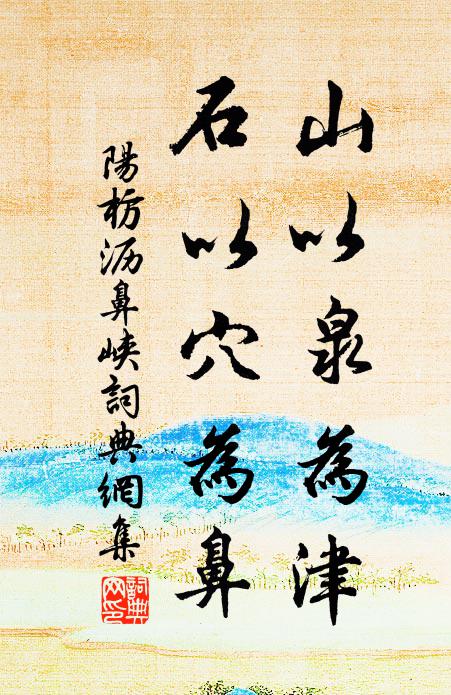 山以泉為津
石以穴為鼻
陽枥沥鼻峽詞典網集
詞典